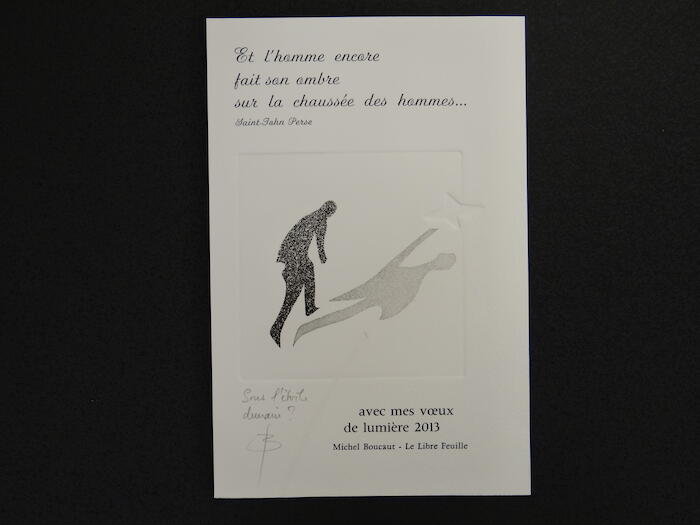 Et l'homme encore
fait son ombre
sur la chaussée des hommes...
Saint-John Perse
Sous l'étoile
demain ?
avec mes vœux
de lumière 2013
Michel Boucaut - Le Libre Feuille